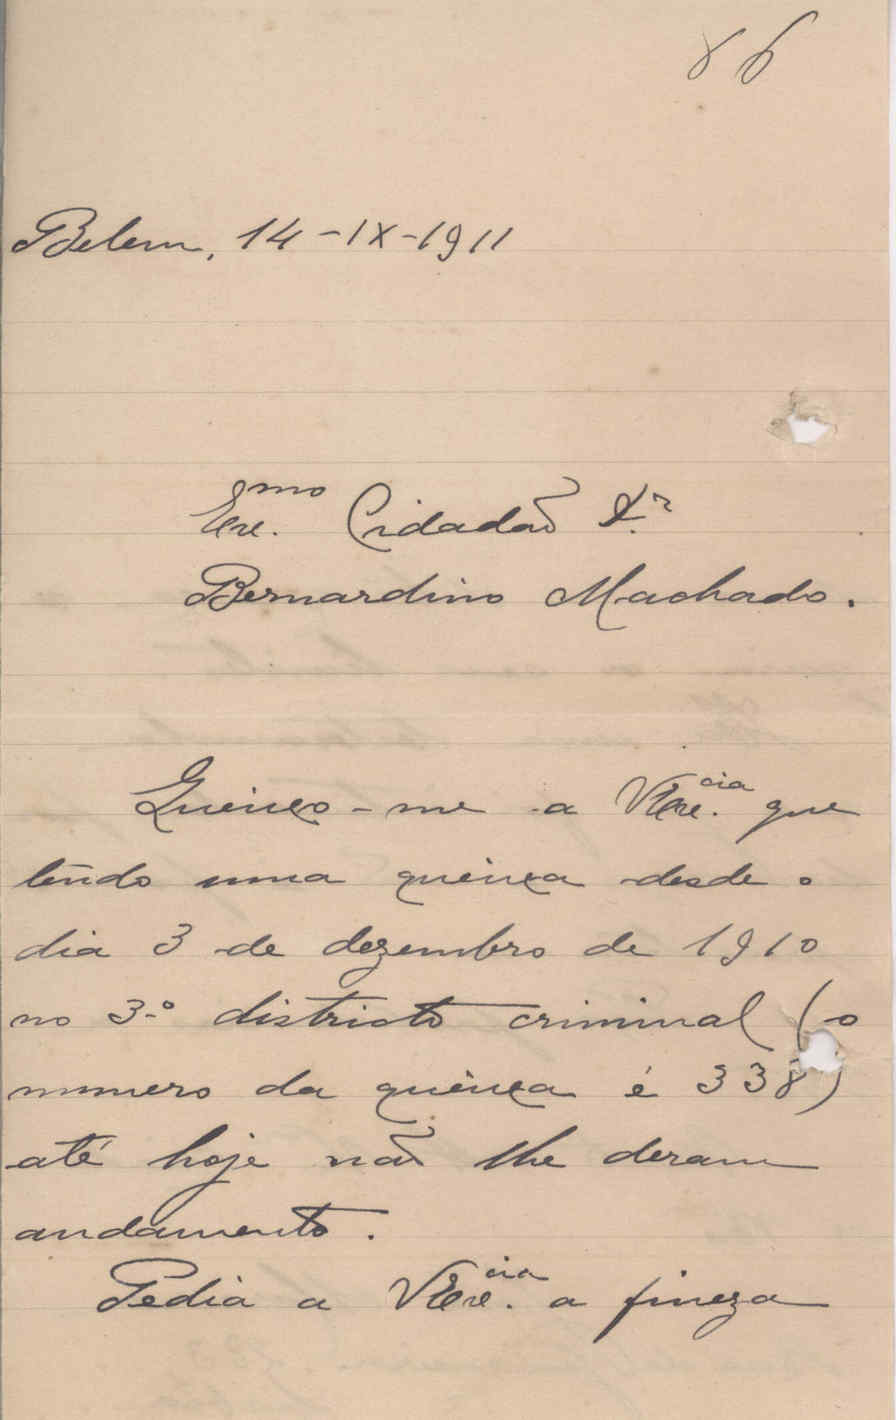 86
Belem, 14-IX-1911
Exe.mo Cidadão Dr.
Bernardino Machado.
Queixo-me a VExe.cia que
tendo uma queixa desde o
dia 3 de dezembro de 1910
no 3.º districto criminal (o
numero da queixa é 338)
até hoje não lhe deram
andamento.
Pedia a VExe.cia a fineza